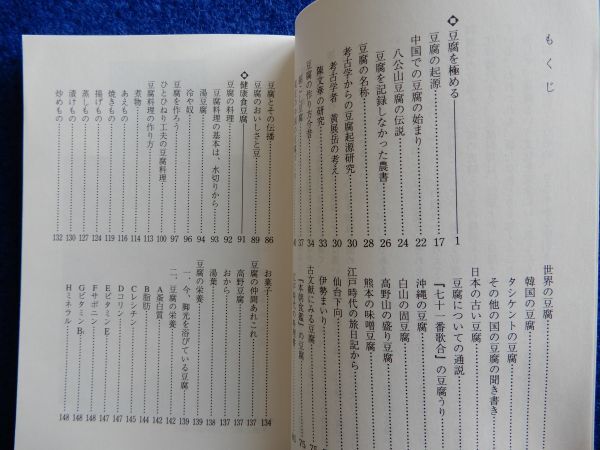 もくじ
◆豆腐を極める 1
豆腐の起源 17
中国での豆腐の始まり 22
八公山豆腐の伝説 24
豆腐を記録しなかった農書 26
豆腐の名称 28
考古学からの豆腐起源研究 30
考古学者 黄展岳の考え 30
陳文華の研究 33
豆腐の作り方今昔 34
世界の豆腐
韓国の豆腐
タシケントの豆腐
その他の国の豆腐の聞き書き
日本の古い豆腐
豆腐についての通説
『七十一番歌合』の豆腐うり
沖縄の豆腐
白山の固豆腐
高野山の盛り豆腐
熊本の味噌豆腐
江戸時代の旅日記から
仙台下向
伊勢まいり
古文献にみる豆腐 75
豆腐とその伝播 86
豆腐のおいしさと豆 89
◆健康食豆腐 91
豆腐の料理 93
豆腐料理の基本は、水切りから 94
湯豆腐 92
冷や奴 96
豆腐を作ろう 97
ひとひねり工夫の豆腐料理 100
豆腐料理の作り方 113
煮物 114
あえもの 116
焼きもの 119
揚げもの 124
蒸しもの 127
漬けもの 130
炒めもの 132
お菓子 134
豆腐の仲間あれこれ 137
高野豆腐 137
おから 137
湯葉 138
豆腐の栄養 139
一、今、脚光を浴びている豆腐 139
二、豆腐の栄養 142
A蛋白質 142
B脂肪 144
Cレシチン 145
Dコリン 147
EビタミンE 147
Fサポニン 147
GビタミンB₁ 148
Hミネラル 148